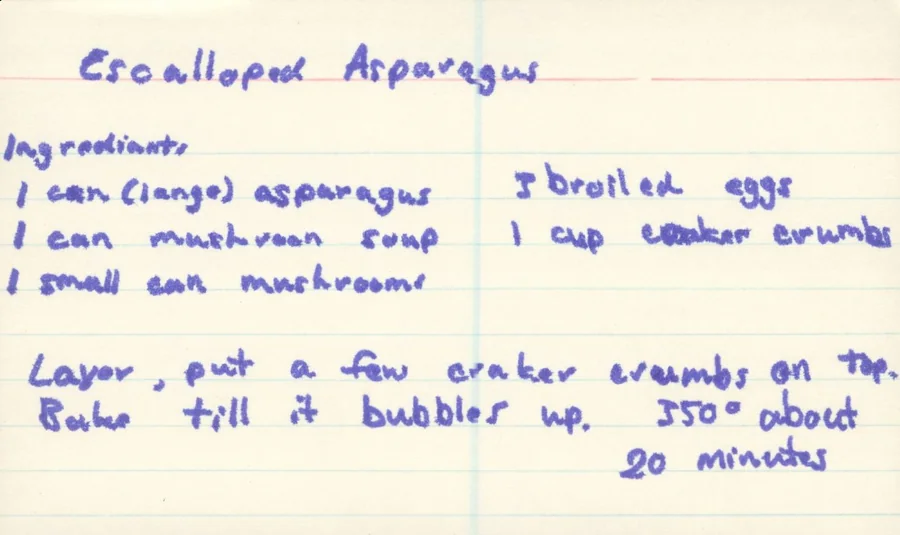 Escalloped Asparagus
Ingrediants
1 can (large) asparagus
1 can mushroon soup
1 small can mushrooms
3 broiled eggs
1 cup craker crumbs
Layer, put a few craker crumbs on top.
Bake till it bubbles up. 350° about
20 minutes